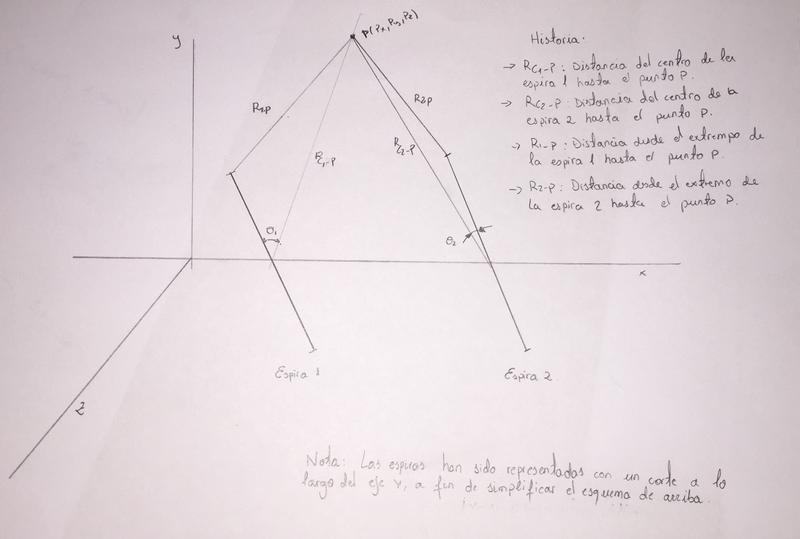 y
P(Px, Py, Pz)
Historia.
→ RC1-P : Distancia del centro de la
espira 1 hasta el punto P.
→ RC2-P : Distancia del centro de la
espira 2 hasta el punto P.
→ R1-P : Distancia desde el extrempo de
la espira 1 hasta el punto P.
→ R2-P : Distancia desde el extremo de
la espira 2 hasta el punto P.
R1P
R2P
RC1-P
RC2-P
θ1
θ2
x
z
Espira 1
Espira 2.
Nota: Las espiras han sido representadas con un corte a lo
largo del eje Y, a fin de simplificar el esquema de arriba.